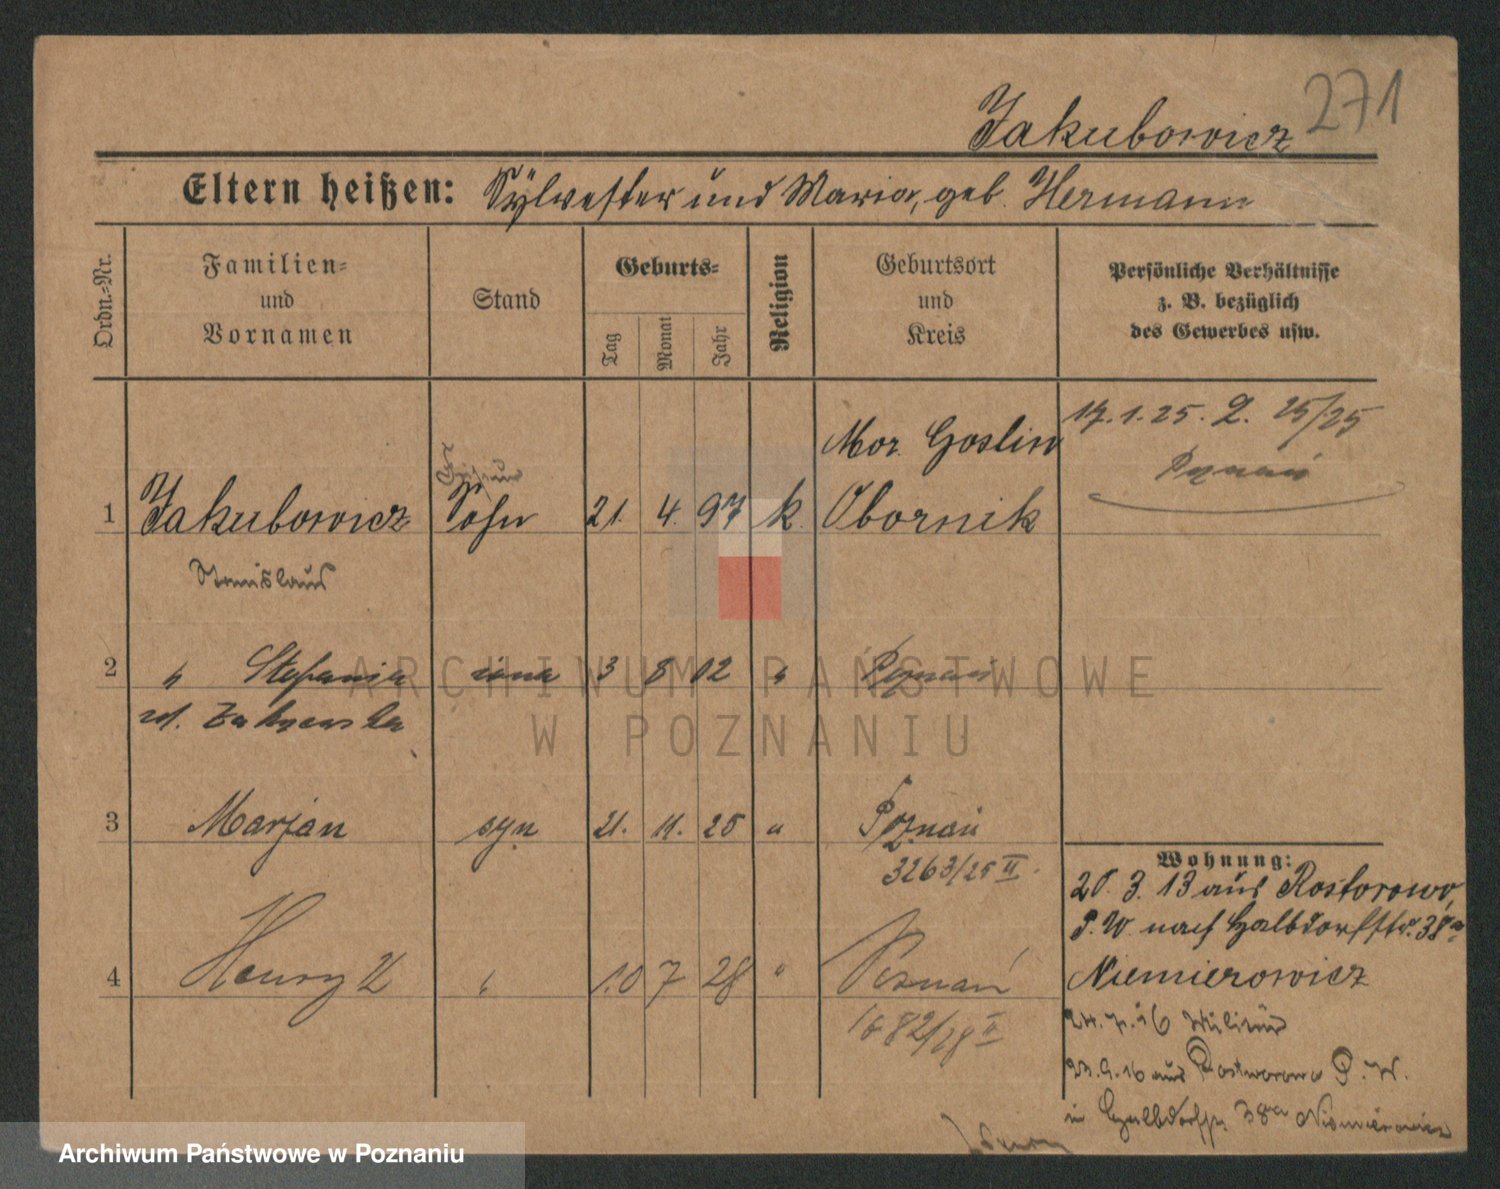 271
Jakubowicz
Eltern heißen: Sylvester und Maria, geb. Hermann
Ordn.-Nr.
Familien-
und
Vornamen
Stand
Geburts-
Tag
Monat
Jahr
Religion
Geburtsort
und
Kreis
Persönliche Verhältnisse
z. B. bezüglich
des Gewerbes usw.
17.1.25. 2. 25/25
Poznań
Mur. Goslin
1 Jakubowicz Sohn 21. 4. 97 k. Obornik
Stanislaus
2 " Stefania żona 3 8 02 " Poznań
3 Marjan syn 21. 11. 25 " Poznań
3263/25 II.
4 Henryk " 10 7 28 " Poznań
1682/28 II
Wohnung:
20. 3. 13 aus Rostworowo,
P. W. nach Halbdorfstr. 38a
Niemierowicz
24.7.16 Militär
23.9.16 aus Rostworowo P. W.
Halbdorfstr. 38a Niemierowicz
ARCHIWUM PAŃSTWOWE
W POZNANIU
Archiwum Państwowe w Poznaniu